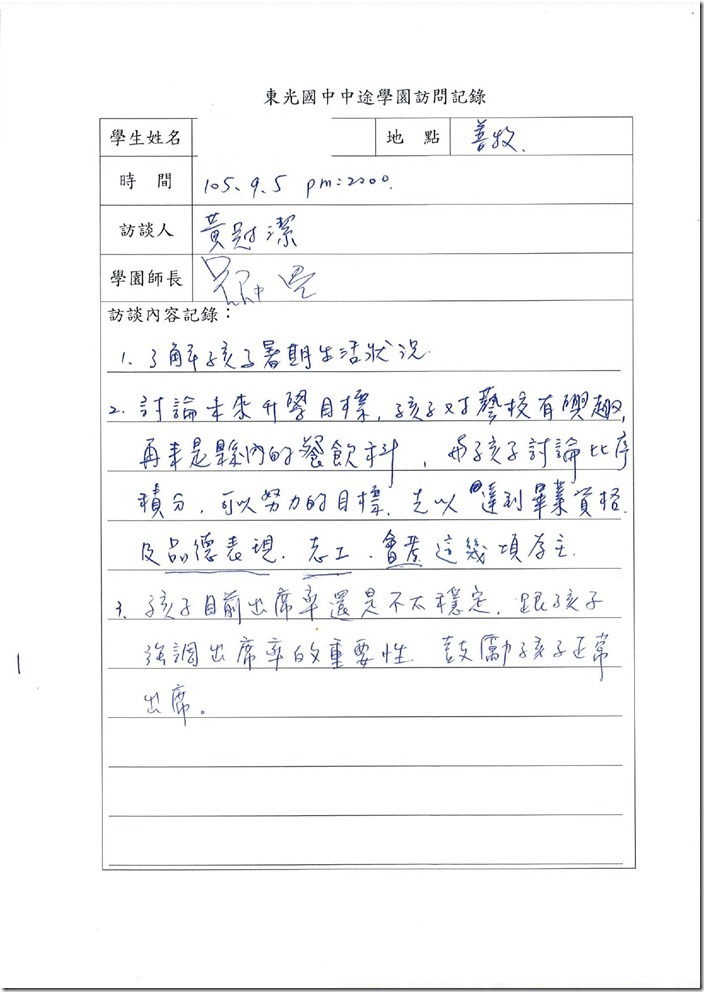 東光國中中途學園訪問記錄
學生姓名 地 點 善牧.
時 間 105、9、5 pm:2:00.
訪談人 黃冠潔
學園師長
訪談內容記錄：
1. 了解孩子暑期生活狀況.
2. 討論未來升學目標, 孩子对藝校有興趣,
再來是縣內的餐飲科, 与孩子討論比序
積分, 可以努力的目標. 先以 達到畢業資格
及品德表現. 志工. 會考 這幾項為主.
3. 孩子目前出席率還是不太穩定, 跟孩子
強調出席率的重要性. 鼓勵孩子正常
出席。